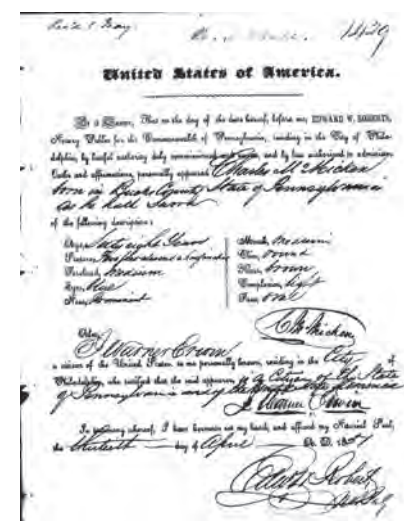 1429
United States of America.
Be it Known, That on the day of the date hereof, before me, EDWARD W. ROBERTS,
Notary Public for the Commonwealth of Pennsylvania, residing in the City of Phila-
delphia, by lawful authority duly commissioned and sworn, and by law authorized to administer
Oaths and affirmations, personally appeared Charles McMicken
born in Bucks County State of Pennsylvania
as he hath Sworn
of the following description:
Age, Sixty eight Years
Stature,
Forehead, Medium
Eyes, blue
Nose, Prominent
Mouth, Medium
Chin, round
Hair, brown
Complexion, light
Face, oval
C McMicken
Also,
J Warner Erwin
a citizen of the United States to me personally known, residing in the City of
Philadelphia, who certified that the said appearer is a Citizen of the State
of Pennsylvania and of
J Warner Erwin
In testimony whereof, I have hereunto set my hand, and affixed my Notarial Seal,
the thirtieth day of April A. D. 18
Edw. W. Roberts